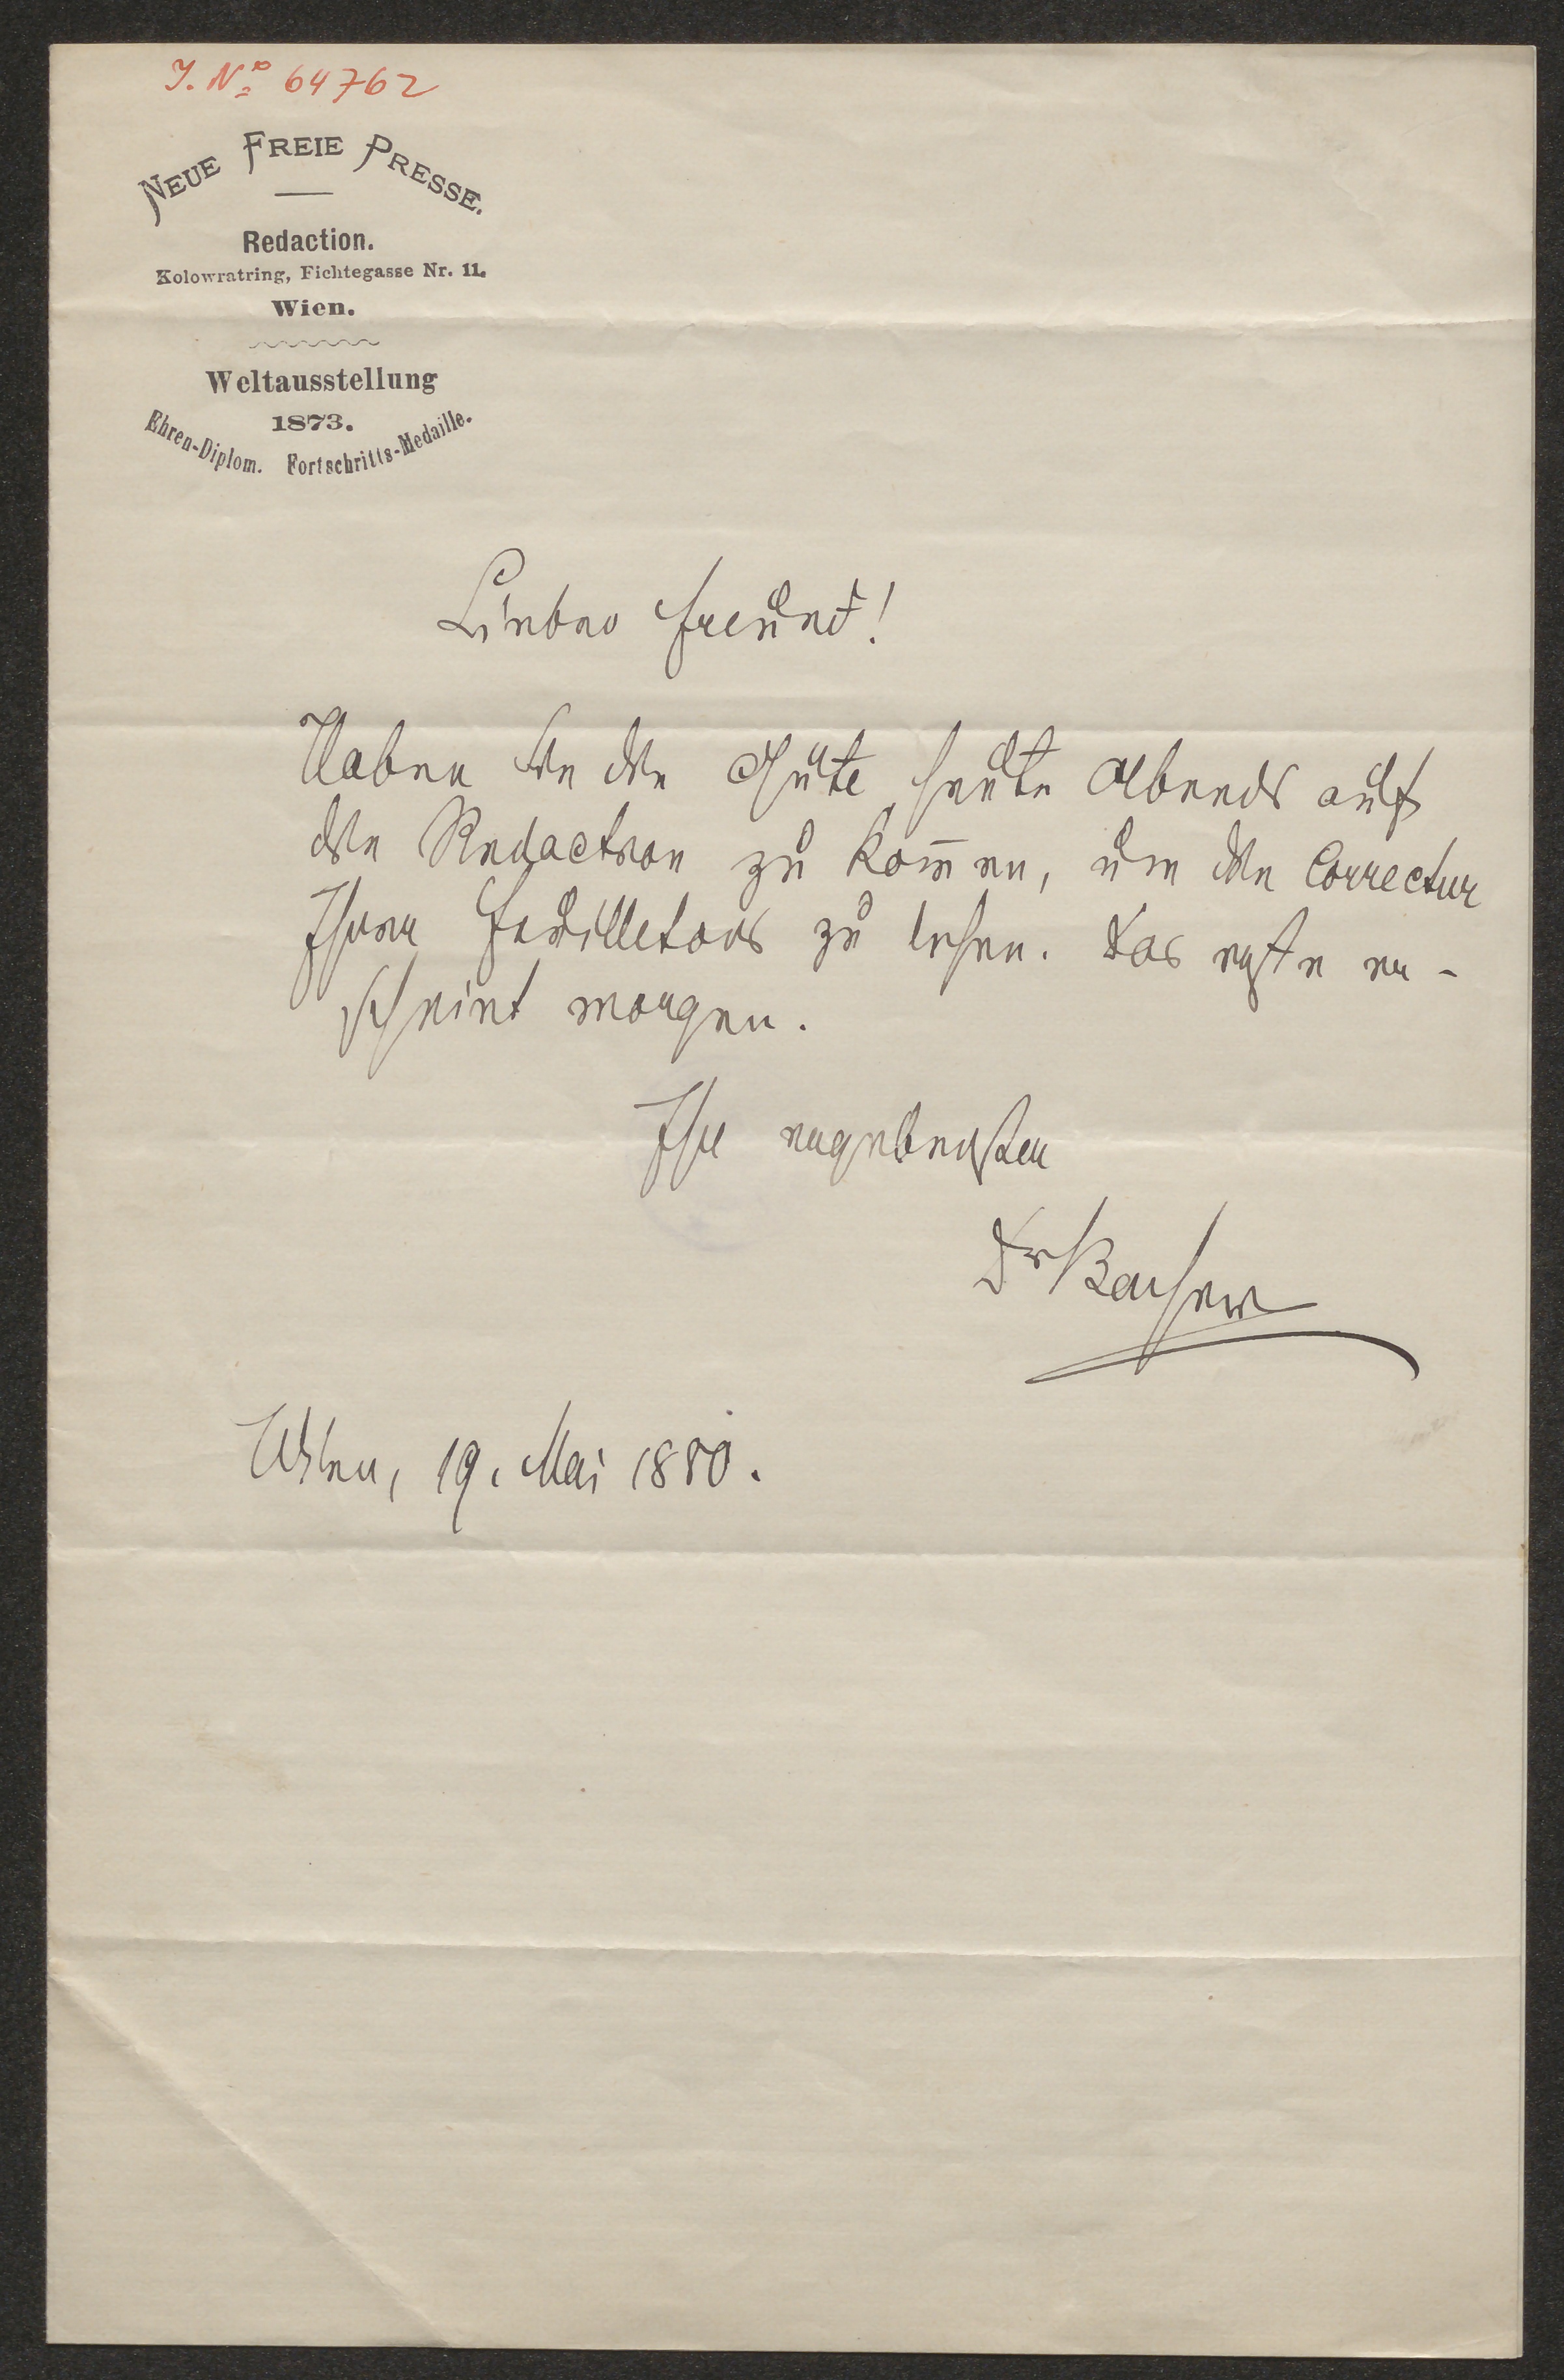 I. Nº 64762
NEUE FREIE PRESSE.
Redaction.
Kolowratring, Fichtegasse Nr. 11.
Wien.
Weltausstellung
1873.
Ehren-Diplom. Fortschritts-Medaille.
Lieber Freund!
Haben Sie die Güte heute Abends auf
die Redaction zu kom̅en, um die Correctur
Ihrer Feuilletons zu lesen. Das erste er-
scheint morgen.
Ihr ergebenster
Dr Bacher
Wien, 19. Mai 1880.